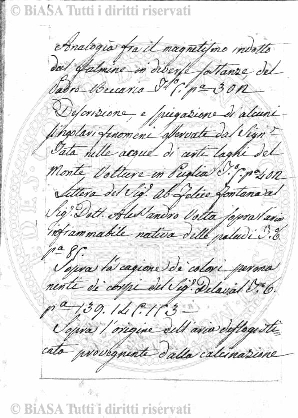 © BiASA Tutti i diritti riservati
Analogia fra il magnetismo indotto
dal fulmine in diverse sostanze del
Padre Beccaria T.° p.ª 302
Descrizione, e spiegazione di alcuni
singolari fenomeni osservati dal Sign.r
Tata nelle acque di certi laghi del
Monte Volture in Puglia p.ª 402
Lettera del Sig.r Ab. Felice Fontana al
Sig.r Dott. Alessandro Volta sopra l'aria
infiammabile nativa delle paludi T.
p.ª 85.
Sopra la cagione de' colori perma
nente de' corpi del Sig.r Delaval T. 6.
p.ª 139. 145. 173.
Sopra l'origine dell'aria deflogisti
cata provegnente dalla calcinazione
© BiASA Tutti i diritti riservati